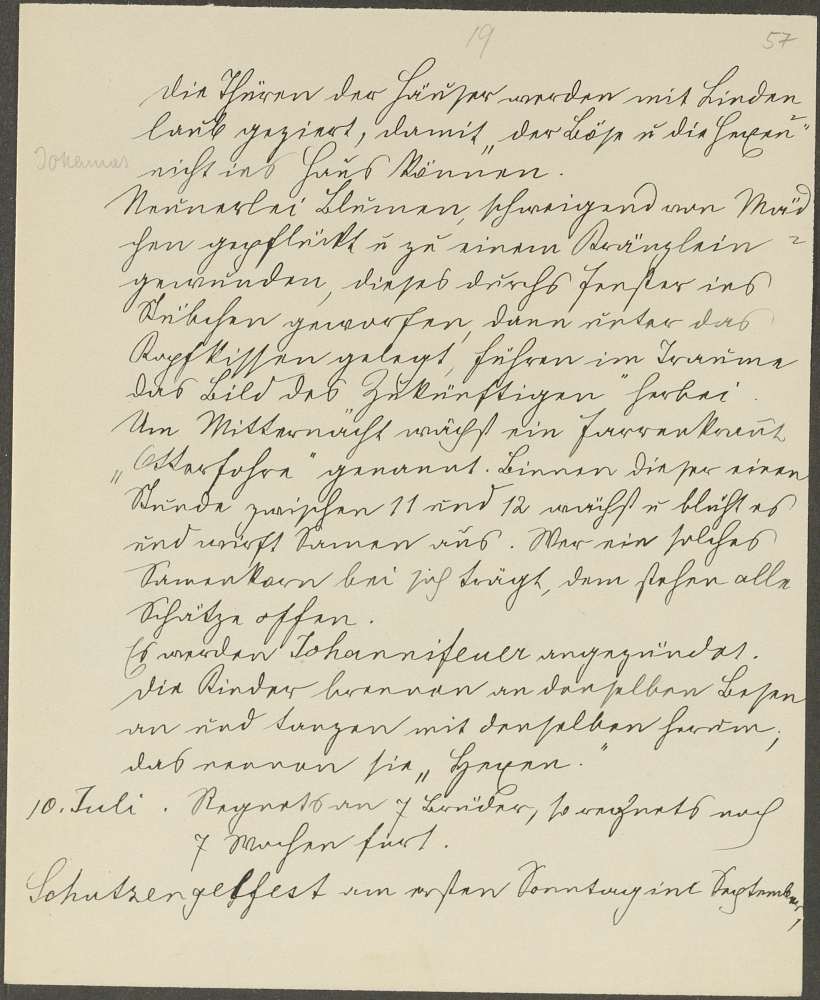 19
57
Die Thüren der Häuser werden mit Linden
laub geziert, damit „der Böse u die Hexen“
Johannes
nicht ins Haus können.
Neunerlei Blumen, schweigend von Mäd
chen gepflückt u zu einem Kränzlein
gewunden, dieses durchs Fenster ins
Stübchen geworfen, dann unter das
Kopfkissen gelegt, führen im Traume
das Bild des Zukünftigen“ herbei.
Um Mitternacht wächst ein Farrenkraut
„Otterfohre“ genannt. Binnen dieser einen
Stunde zwischen 11 und 12 wächst u blüht es
und wirft Samen aus. Wer ein solches
Samenkorn bei sich trägt, dem stehen alle
Schätze offen.
Es werden Johannifeuer angezündet.
Die Kinder brennen an denselben Besen
an und tanzen mit denselben herum;
das nennen sie „Hexen.“
10. Juli. Regnets an 7 Brüder, so regnets noch
7 Wochen fort.
Schutzengelfest am ersten Sonntag im September,